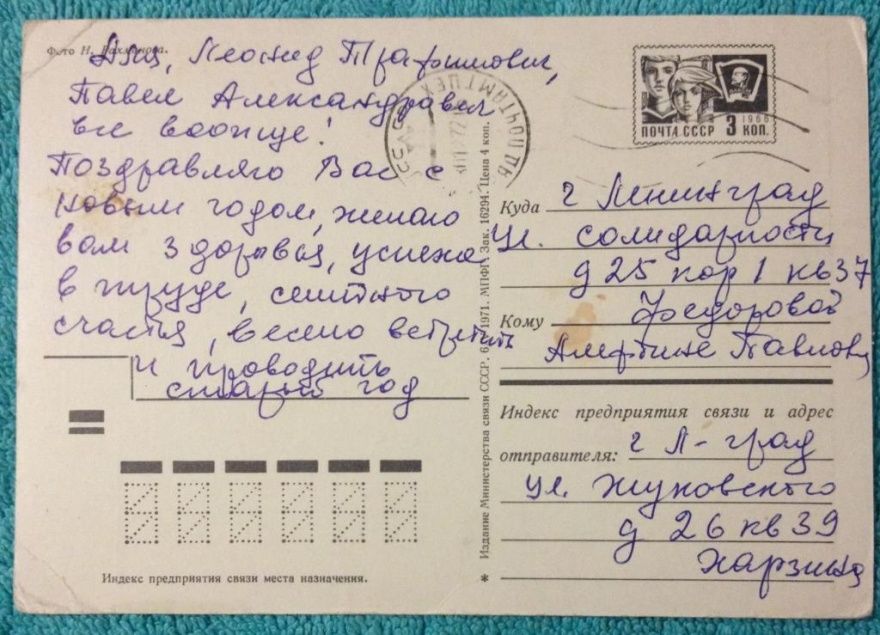 Фото Н. Рахманова.
Аля, Леонид Трафимович,
Павел Александравеч
все вообще!
Поздравляю Вас с
новым годом, желаю
вам здоровья, успеха
в труде, семейного
счастья, весело встретить
и проводить
старый год
Индекс предприятия связи места назначения.
Издание Министерства связи СССР. 1971. МПФГ. Зак. 16294. Цена 4 коп.
ПОЧТАМТ
ПОЧТА СССР 3 КОП.
1966
Куда г Ленинград
ул. солидарности
д 25 кор 1 кв 37
Кому Федоровой
Павловне
Индекс предприятия связи и адрес
отправителя: г Л-град
ул. Жуковского
д 26 кв 39
Харзина